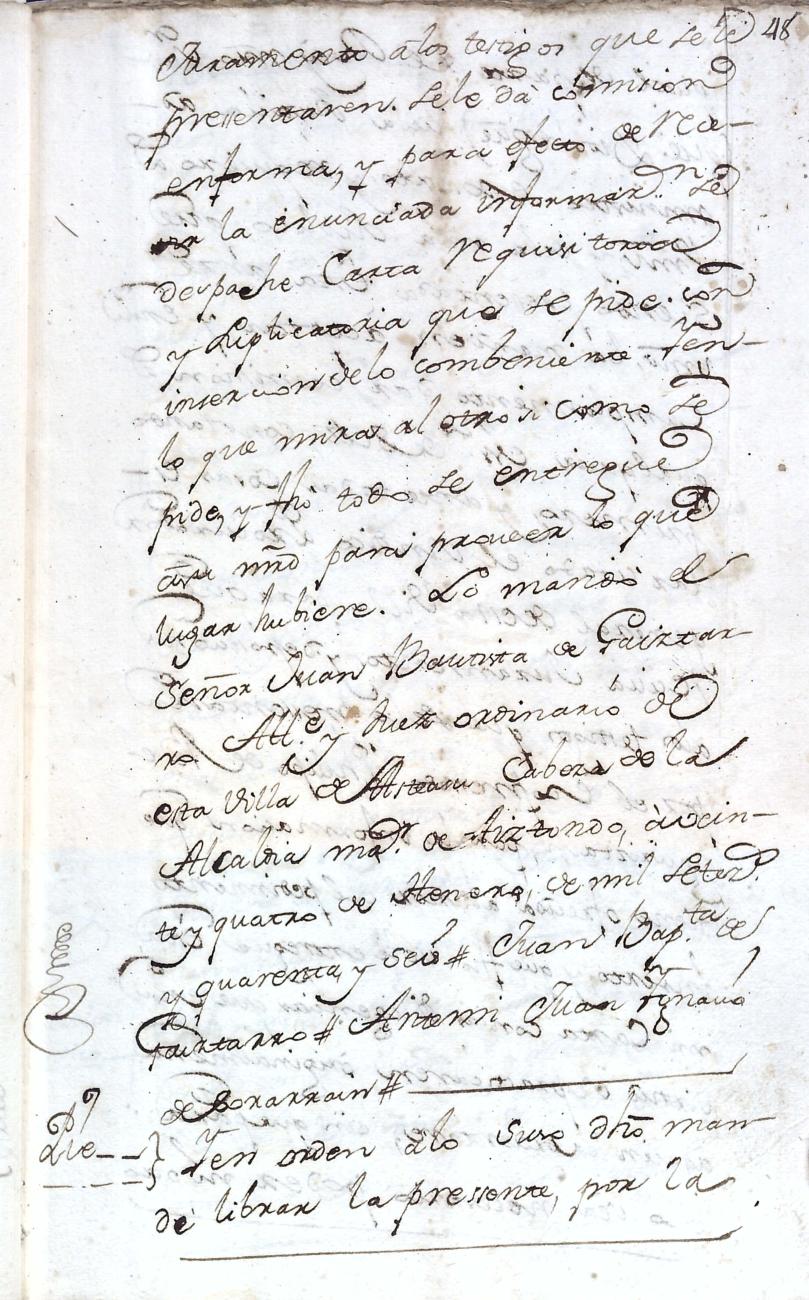 48
Juramento alos testigos que se le
pressentaren. se le dà comision
enforma, y para efecto de reci-
vir la enunciada informaz.n se
despache Carta requisitoria
y suplicatoria que se pide. con
insercion delo combeniente. Yen-
lo que mira al otrosi como se
pide, y fho todo se entregue
asu mrd para proveer lo que
lugar hubiere. Lo mandò el
Señor Juan Bautista de Gaiztar-
ro All.e y Juez ordinario de
esta Villa de Asteasu Cabeza de la
Alcaldia ma.r de Aiztondo, à vein-
te y quatro de Henero, de mil setez.s
y quarenta, y seis # Juan Bap.ta de
Gaiztarro # Antemi Juan Ygnacio
de Sorarrain #
Pie Yen orden alo suso dho man-
dè librar la pressente, por la